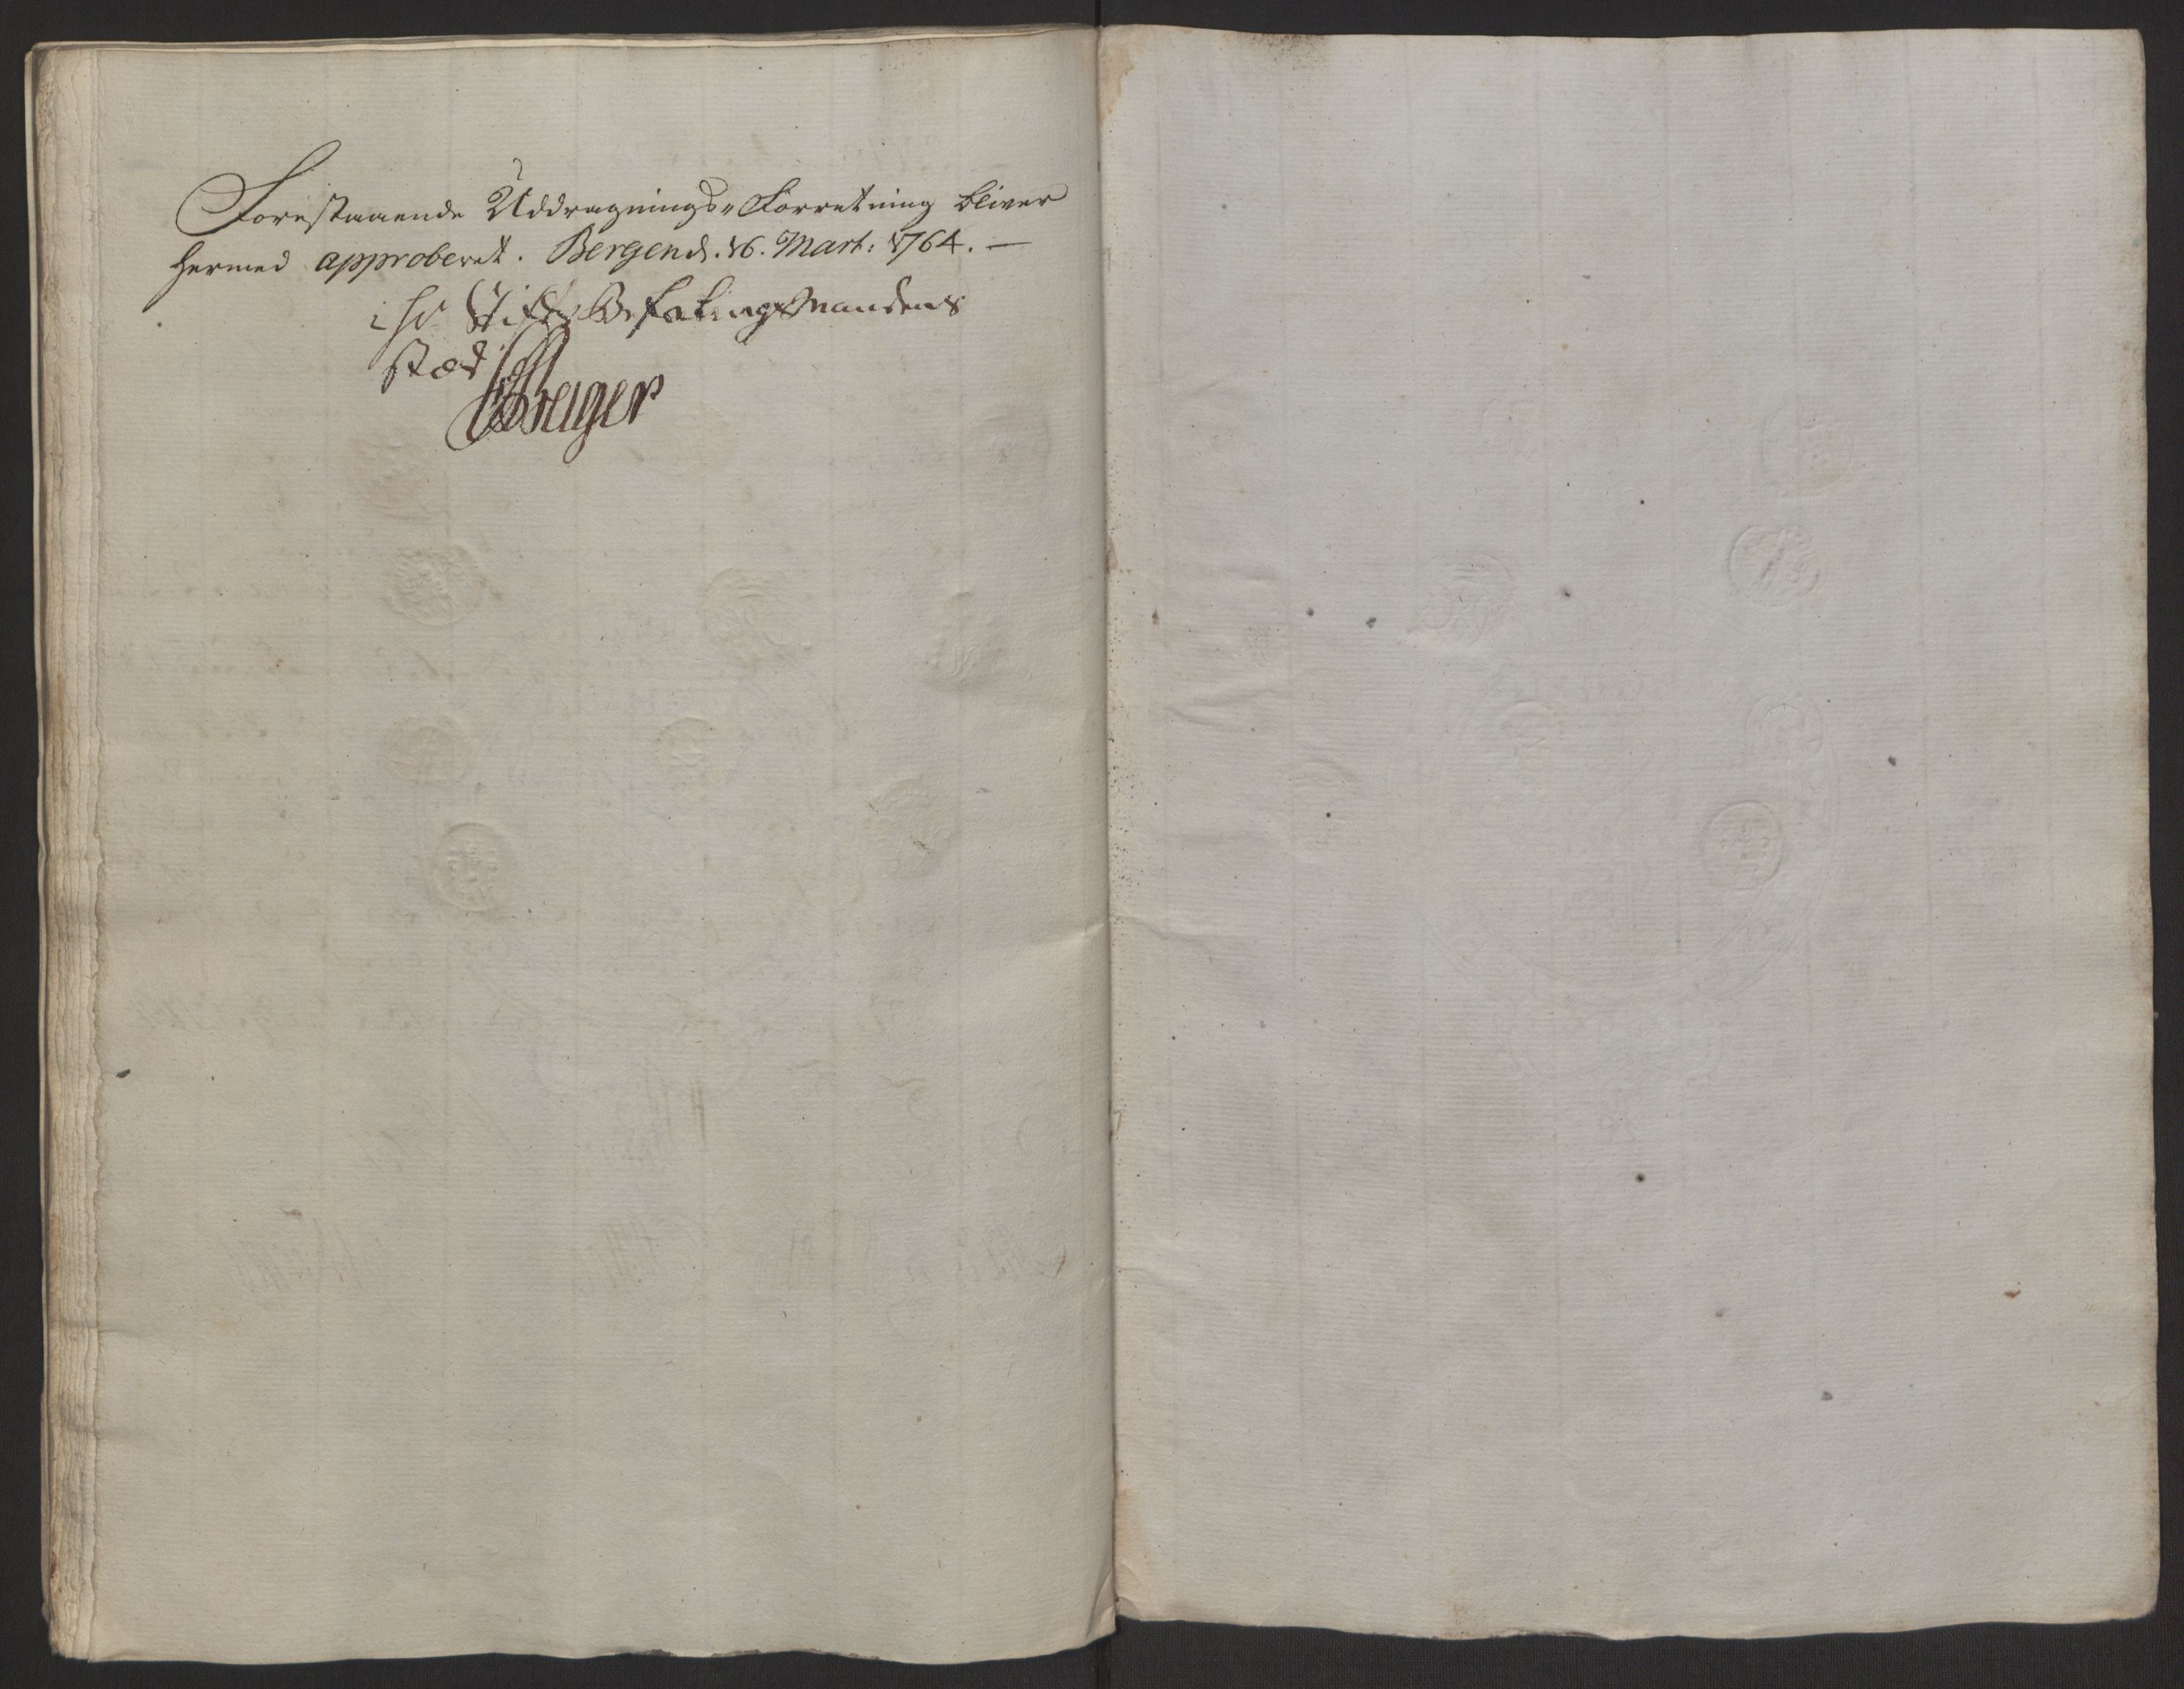 Forestaaende Uddragnings-Forretning bliver
hermed approberet. Bergen d. 16. Mart: 1764. —
i Hr Stifts Befalings Mandens
stæd